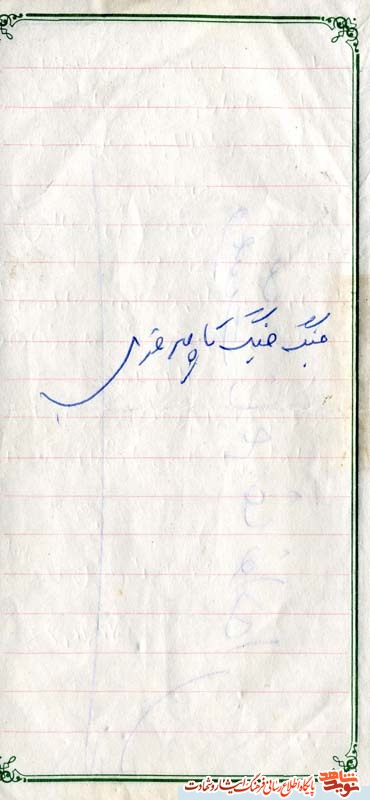 جنگ جنگ تا پیروزی
نوید شاهد
پایگاه اطلاع رسانی فرهنگ ایثار و شهادت